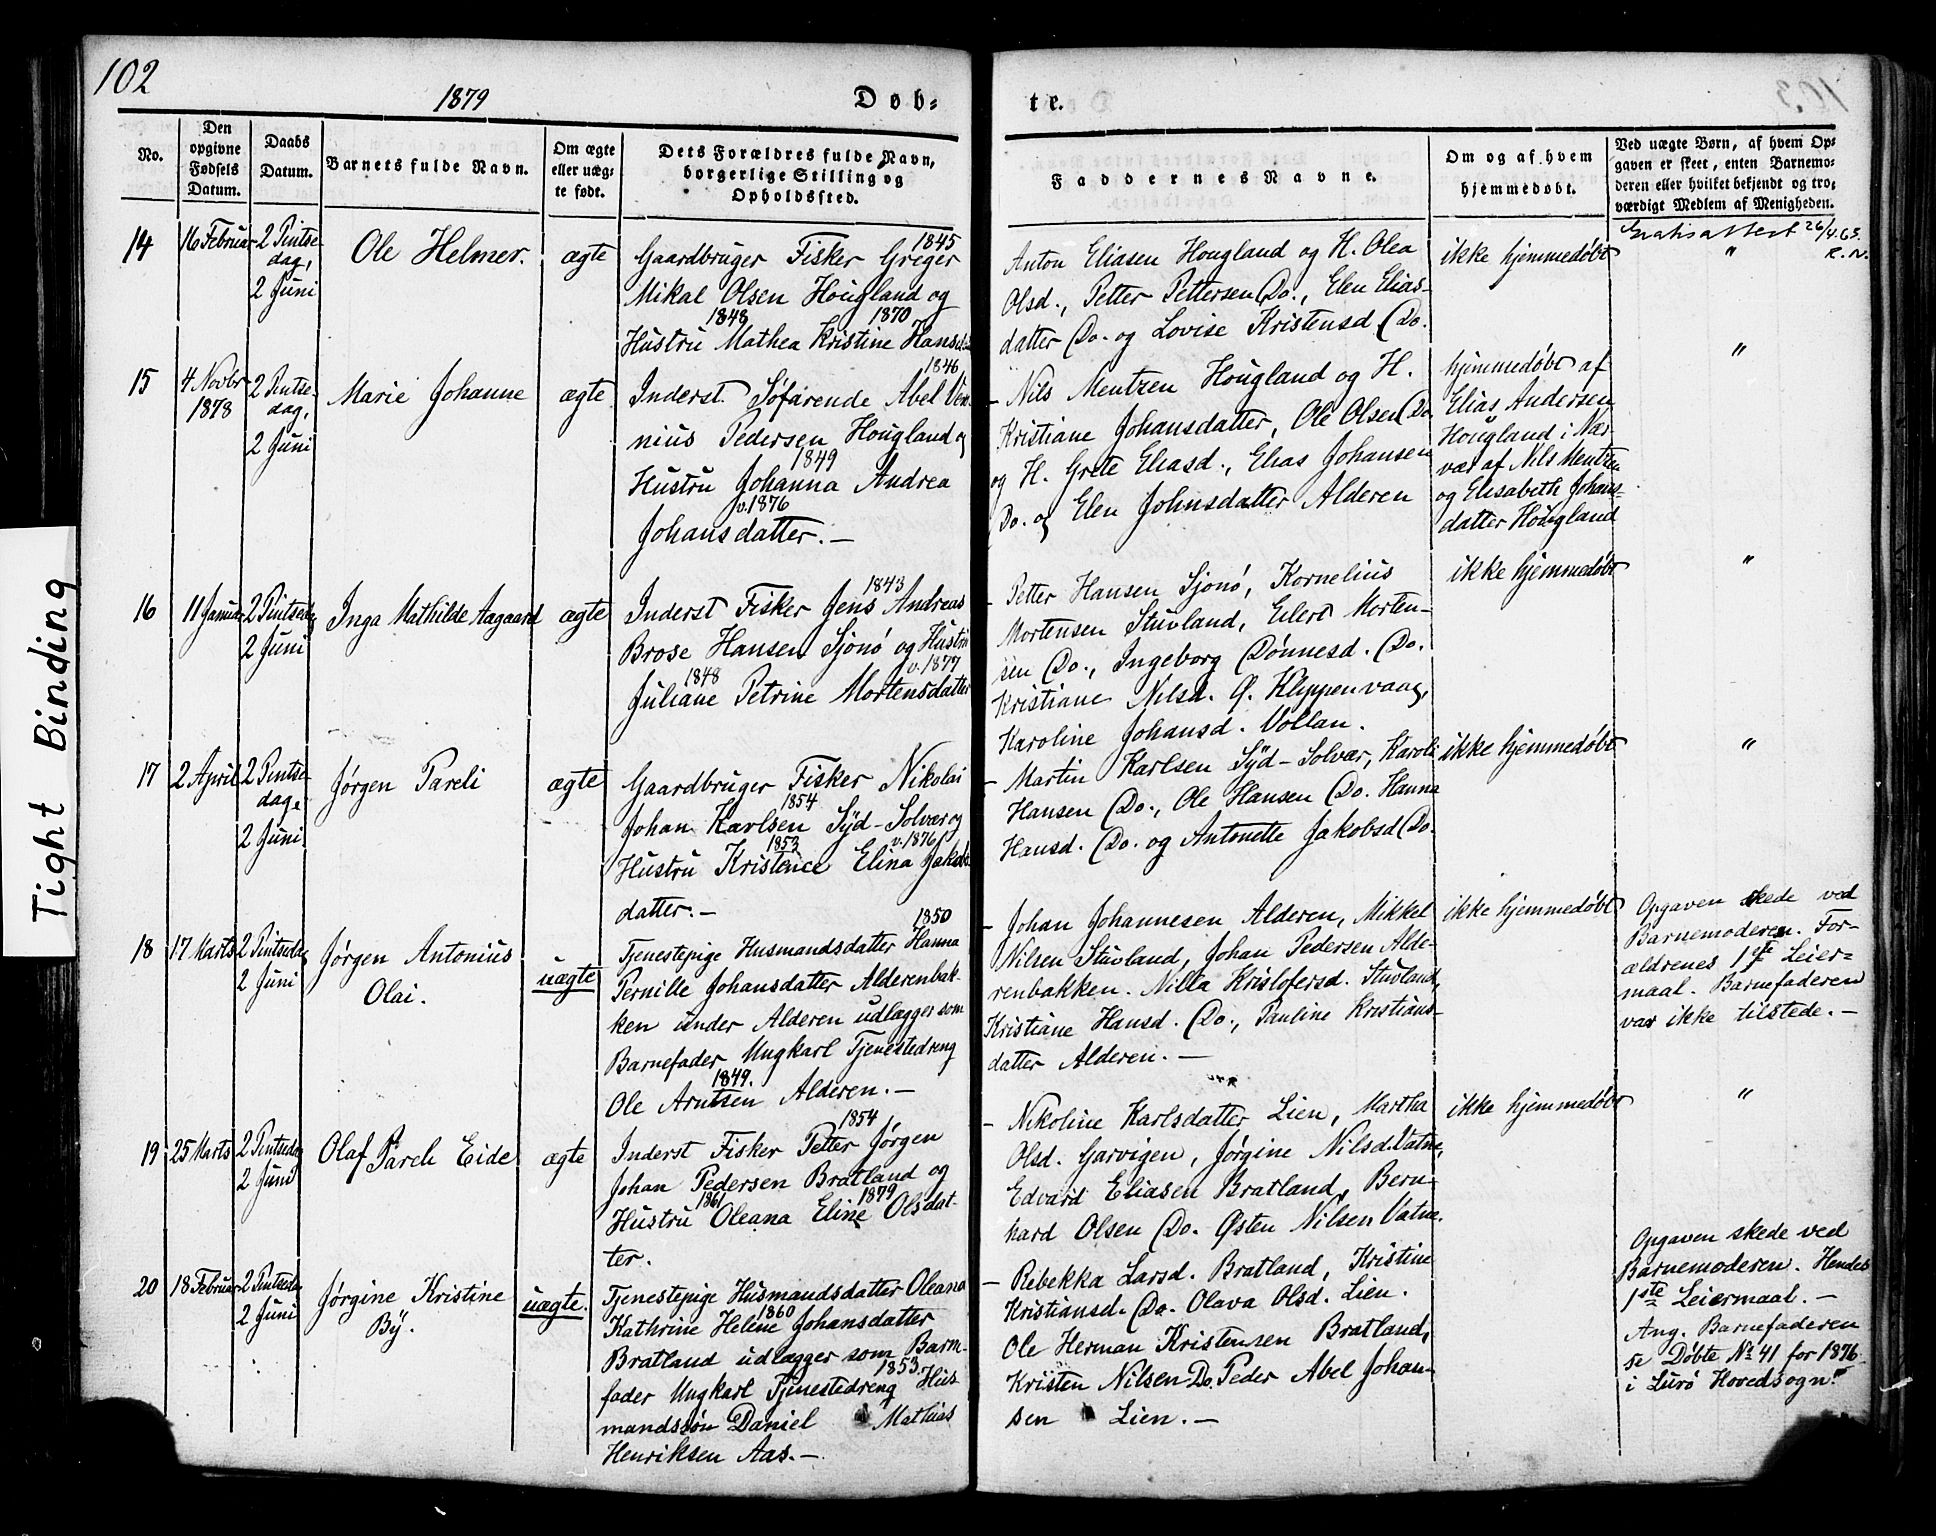 102
1879
Døb=
te.
103
No.
Den opgivne Fødsels Datum.
Daabs Datum.
Barnets fulde Navn.
Om ægte eller uæg= te født.
Dets Forældres fulde Navn, borgerlige Stilling og Opholdssted.
Faddernes Navne.
Om og af hvem hjemmedøbt.
Ved uægte Børn, af hvem Op=
gaven er skeet, enten Barnemo=
deren eller hvilket bekjendt og tro=
værdigt Medlem af Menigheden.
14
16 Februar
2 Pintse-
dag,
2 Juni
Ole Helmer.
ægte
1845
Gaardbruger Fisker Greger
Mikal Olsen Hougland og
1848 1870
Hustru Mathea Kristine Hansd.
Anton Eliasen Hougland og H. Olea
Olsd., Petter Pettersen Do., Elen Elias-
datter Do. og Lovise Kristensd. Do.
ikke hjemmedøbt
Gratisattest 26/4.63.
" R.N.
15
4 Novbr
1878
2 Pintse-
dag,
2 Juni
Marie Johanne
ægte
1846
Inderst Søfarende Abel Ven-
nius Pedersen Hougland og
1849
Hustru Johanna Andrea
v.1876
Johansdatter. —
- Nils Mentzen Hougland og H.
Kristiane Johansdatter, Ole Olsen Do.
og H. Grete Eliasd., Elias Johansen
Do. og Elen Johnsdatter Alderen
hjemmedøbt af
Elias Andersen
Hougland i Nær-
vær af Nils Mentzen
og Elisabeth Johans-
datter Hougland
"
16
11 Januar
2 Pintsedag
2 Juni
Inga Mathilde Aagaard
ægte
1843
Inderst Fisker Jens Andreas
Brose Hansen Sjonø og Hustru
1848 v.1877
Juliane Petrine Mortensdatter
- Petter Hansen Sjonø, Kornelius
Mortensen Stuvland, Eilert Morten-
sen Do., Ingeborg Dønnesd. Do.
Kristiane Nilsd. G. Klyppenvaag,
Karoline Johansd. Vollan.
ikke hjemmedøbt
"
17
2 April
2 Pintse-
dag,
2 Juni
Jørgen Pareli
ægte
Gaardbruger Fisker Nikolai
1854
Johan Karlsen Syd-Solvær og
1853 v.1876
Hustru Kristence Elina Jakobs-
datter. —
- Martin Karlsen Syd-Solvær, Karoli
Hansen Do., Ole Hansen Do. Hanna
Hansd. Do. og Antonette Jakobsd. Do.
ikke hjemmedøbt
"
18
17 Marts
2 Pintsedag
2 Juni
Jørgen Antonius
Olai.
uægte
1850
Tjenestepige Husmandsdatter Hanna
Pernille Johansdatter Alderenbak-
ken under Alderen udlægger som
Barnefader Ungkarl Tjenestedreng
1849.
Ole Arntsen Alderen. —
- Johan Johannesen Alderen, Mikkel
Nilsen Stuvland, Johan Pedersen Alde-
renbakken. Nilla Kristofersd. Stuvland,
Kristiane Hansd. Do., Pauline Kristians-
datter Alderen. —
ikke hjemmedøbt
Opgaven skede ved
Barnemoderen. For-
ældrenes 1ste Leier-
maal. Barnefaderen
var ikke tilstede. —
19
25 Marts
2 Pintsedag
2 Juni
Olaf Pareli Eide
ægte
1854
Inderst Fisker Petter Jørgen
Johan Pedersen Bratland og
1861 1879
Hustru Oleana Eline Olsdat-
ter.
- Nikoline Karlsdatter Lien, Martha
Olsd. Garvigen, Jørgine Nilsd. Vatne,
Edvard Eliasen Bratland, Bern-
hard Olsen Do. Østen Nilsen Vatne.
ikke hjemmedøbt
"
20
18 Februar
2 Pintsedag
2 Juni
Jørgine Kristine
By.
uægte.
Tjenestepige Husmandsdatter Oleana
1860
Kathrine Helene Johansdatter
Bratland udlægger som Barn-
1853.
fader Ungkarl Tjenestedreng Hus-
mandssøn Daniel Mathias
Henriksen Aas. —
- Rebekka Larsd. Bratland, Kristine
Kristiansd. Do. Olava Olsd. Lien.
Ole Herman Kristensen Bratland,
Kristen Nilsen Do. Peder Abel Johan-
sen Lien. —
Opgaven skede ved
Barnemoderen. Hendes
1ste Leiermaal. —
Ang. Barnefaderen
se Døbte No 41 for 1876
i Lurø Hovedsogn.
Tight Binding